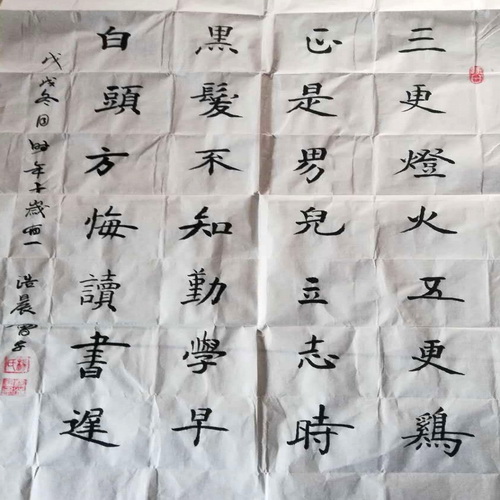 三更燈火五更鷄
正是男兒立志時
黑髮不知勤學早
白頭方悔讀書遲
戊戌冬月时年十歲有一
浩晨書